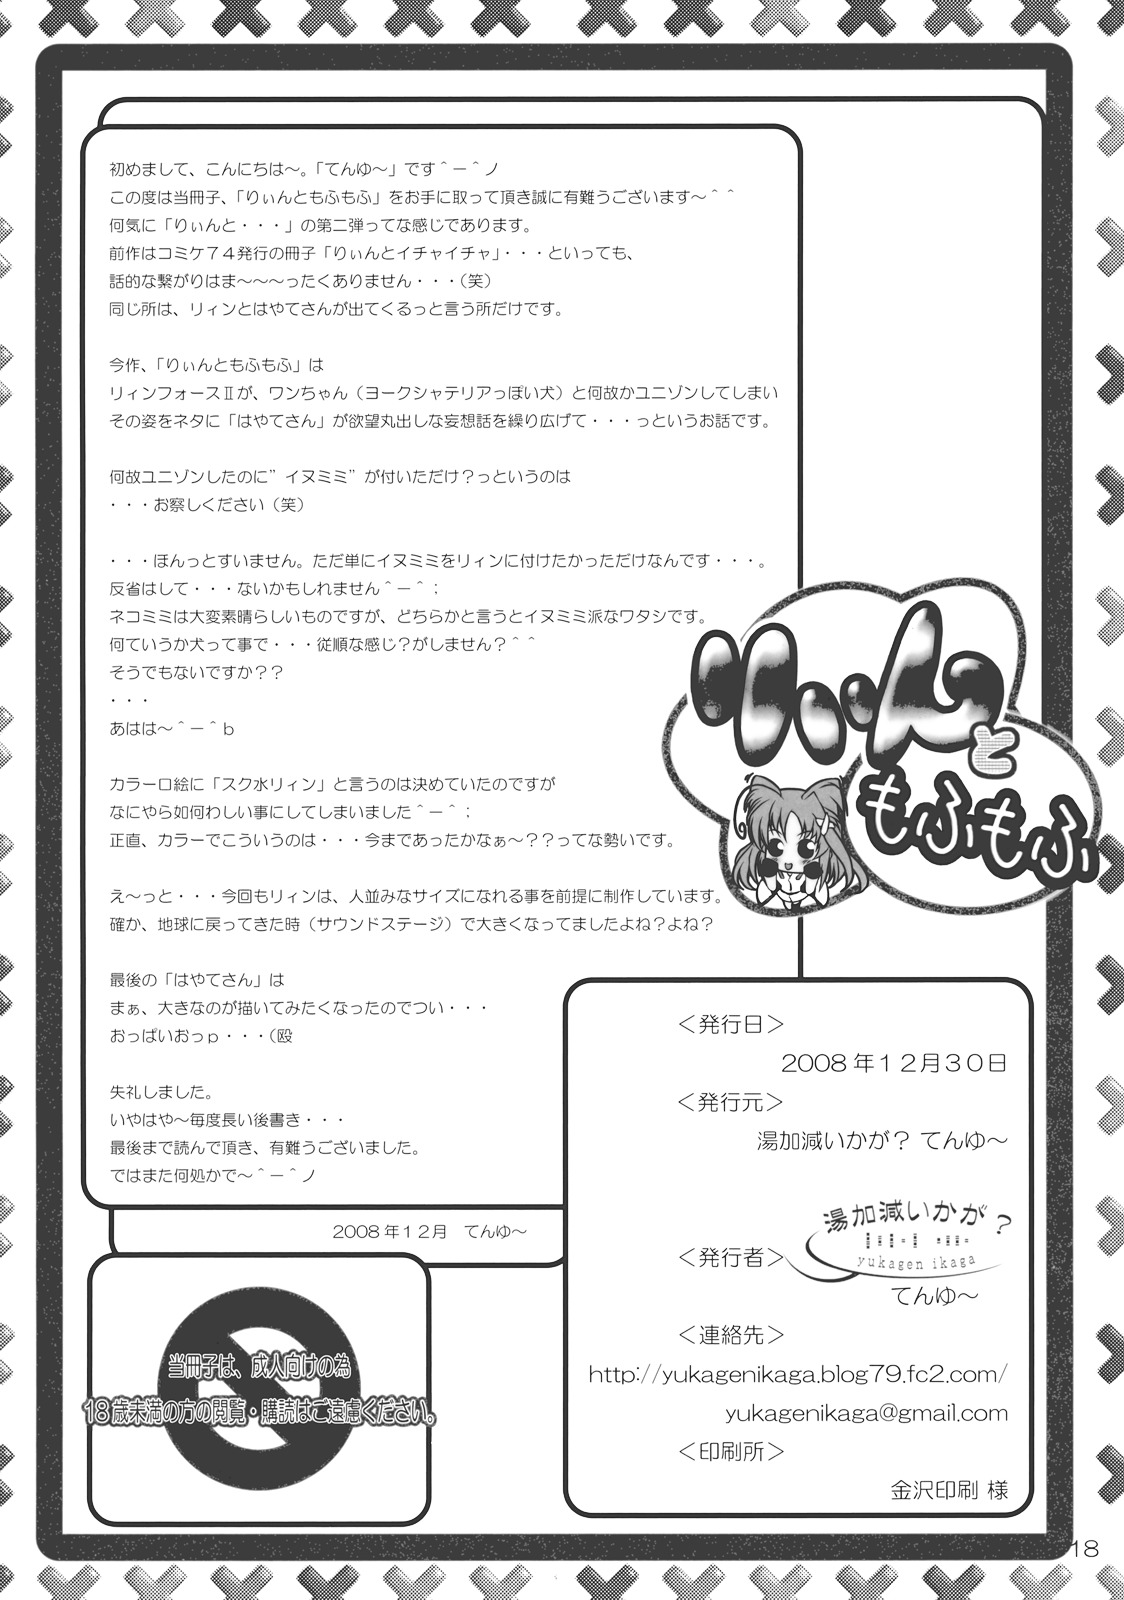 初めまして、こんにちは～。「てんゆ～」です＾－＾ノ
この度は当冊子、「りぃんともふもふ」をお手に取って頂き誠に有難うございます～＾＾
何気に「りぃんと・・・」の第二弾ってな感じであります。
前作はコミケ７４発行の冊子「りぃんとイチャイチャ」・・・といっても、
話的な繋がりはま～～～ったくありません・・・（笑）
同じ所は、リィンとはやてさんが出てくるっと言う所だけです。
今作、「りぃんともふもふ」は
リィンフォースⅡが、ワンちゃん（ヨークシャテリアっぽい犬）と何故かユニゾンしてしまい
その姿をネタに「はやてさん」が欲望丸出しな妄想話を繰り広げて・・・っというお話です。
何故ユニゾンしたのに”イヌミミ”が付いただけ？っというのは
・・・お察しください（笑）
・・・ほんっとすいません。ただ単にイヌミミをリィンに付けたかっただけなんです・・・。
反省はして・・・ないかもしれません＾－＾；
ネコミミは大変素晴らしいものですが、どちらかと言うとイヌミミ派なワタシです。
何ていうか犬って事で・・・従順な感じ？がしません？＾＾
そうでもないですか？？
・・・
あはは～＾－＾ｂ
カラー口絵に「スク水リィン」と言うのは決めていたのですが
なにやら如何わしい事にしてしまいました＾－＾；
正直、カラーでこういうのは・・・今まであったかなぁ～？？ってな勢いです。
え～っと・・・今回もリィンは、人並みなサイズになれる事を前提に制作しています。
確か、地球に戻ってきた時（サウンドステージ）で大きくなってましたよね？よね？
最後の「はやてさん」は
まぁ、大きなのが描いてみたくなったのでつい・・・
おっぱいおっｐ・・・（殴
失礼しました。
いやはや～毎度長い後書き・・・
最後まで読んで頂き、有難うございました。
ではまた何処かで～＾－＾ノ
2008年１２月　てんゆ～
りぃん
と
もふもふ
＜発行日＞
2008年１２月３０日
＜発行元＞
湯加減いかが？ てんゆ～
湯加減いかが？
yukagen ikaga
＜発行者＞
てんゆ～
＜連絡先＞
http://yukagenikaga.blog79.fc2.com/
yukagenikaga@gmail.com
＜印刷所＞
金沢印刷 様
当冊子は、成人向けの為
18歳未満の方の閲覧・購読はご遠慮ください。
18